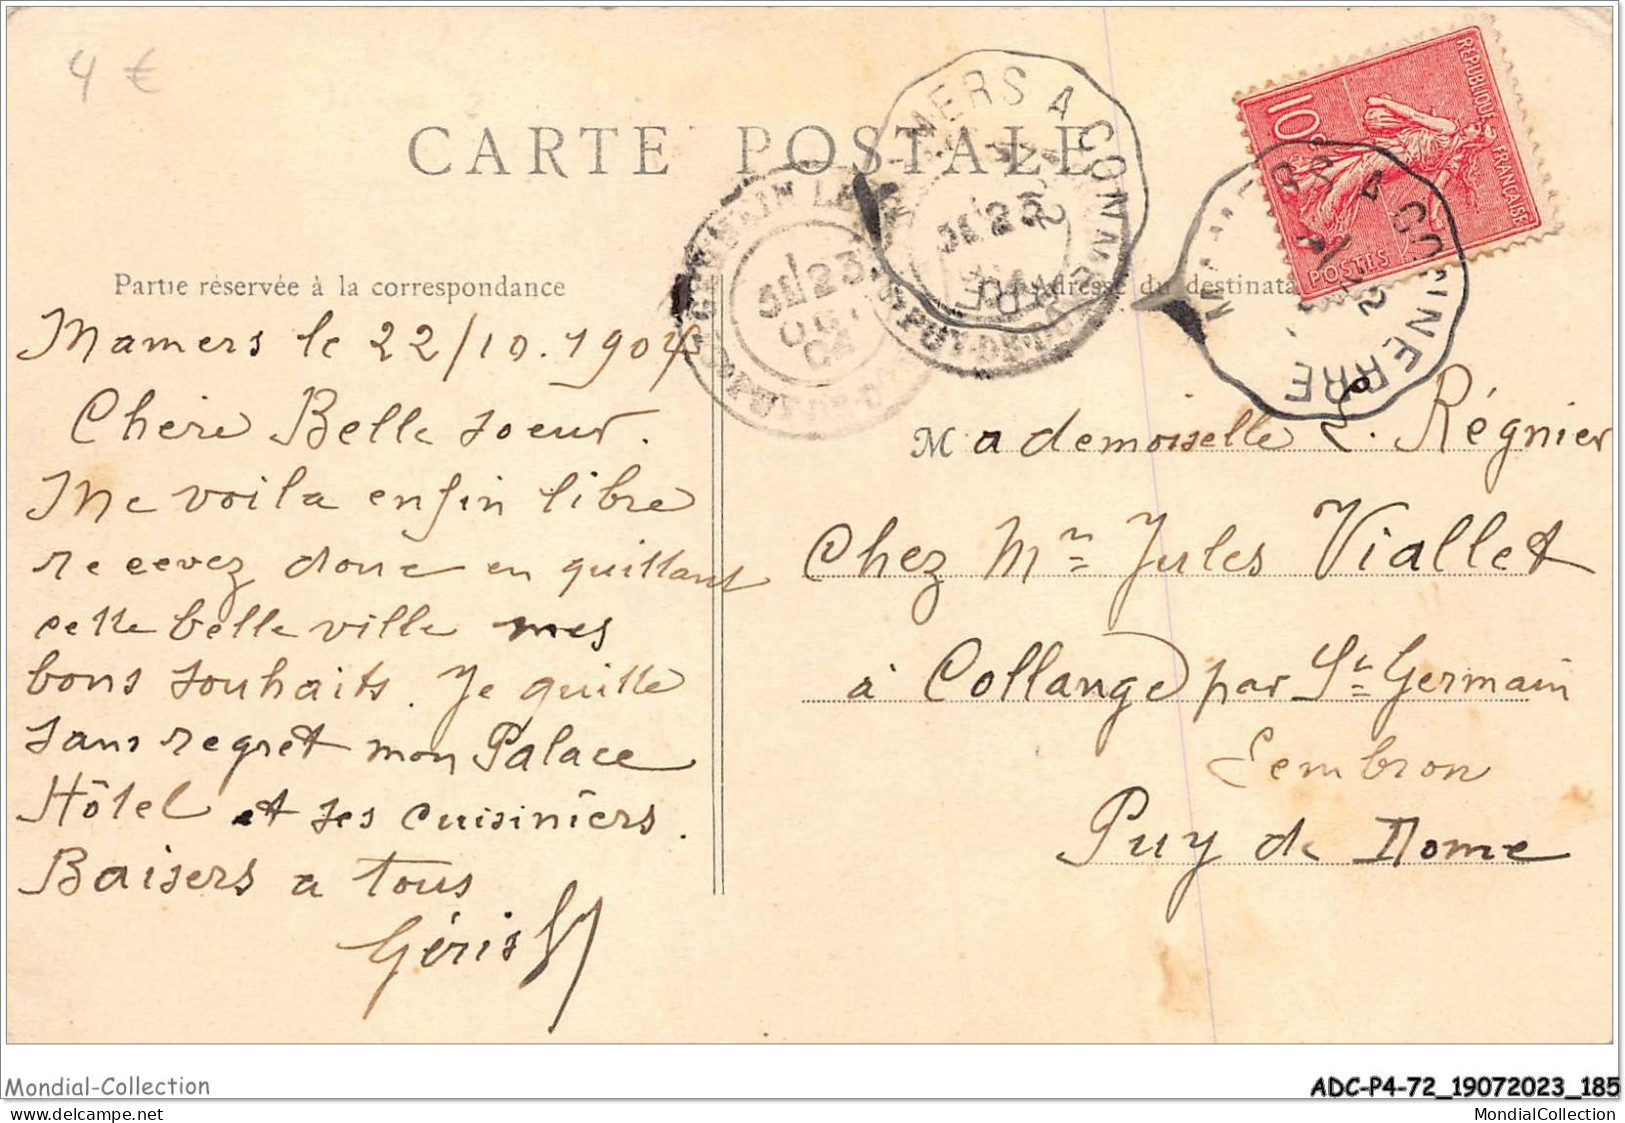 4 €
CARTE POSTALE
MAMERS A CONNERRÉ
RÉPUBLIQUE FRANÇAISE
10c
POSTES
Partie réservée à la correspondance
Adresse du destinata
Mamers le 22/10.1904
Chère Belle soeur.
Me voila enfin libre
recevez donc en quittant
cette belle ville mes
bons souhaits. Je quitte
sans regret mon Palace
Hôtel et ses cuisiniers.
Baisers a tous
Mademoiselle L. Régnier
Chez Mr Jules Viallet
à Collange par St Germain
Lembron
Puy de Dome
Mondial-Collection
ADC-P4-72_19072023_185
MondialCollection